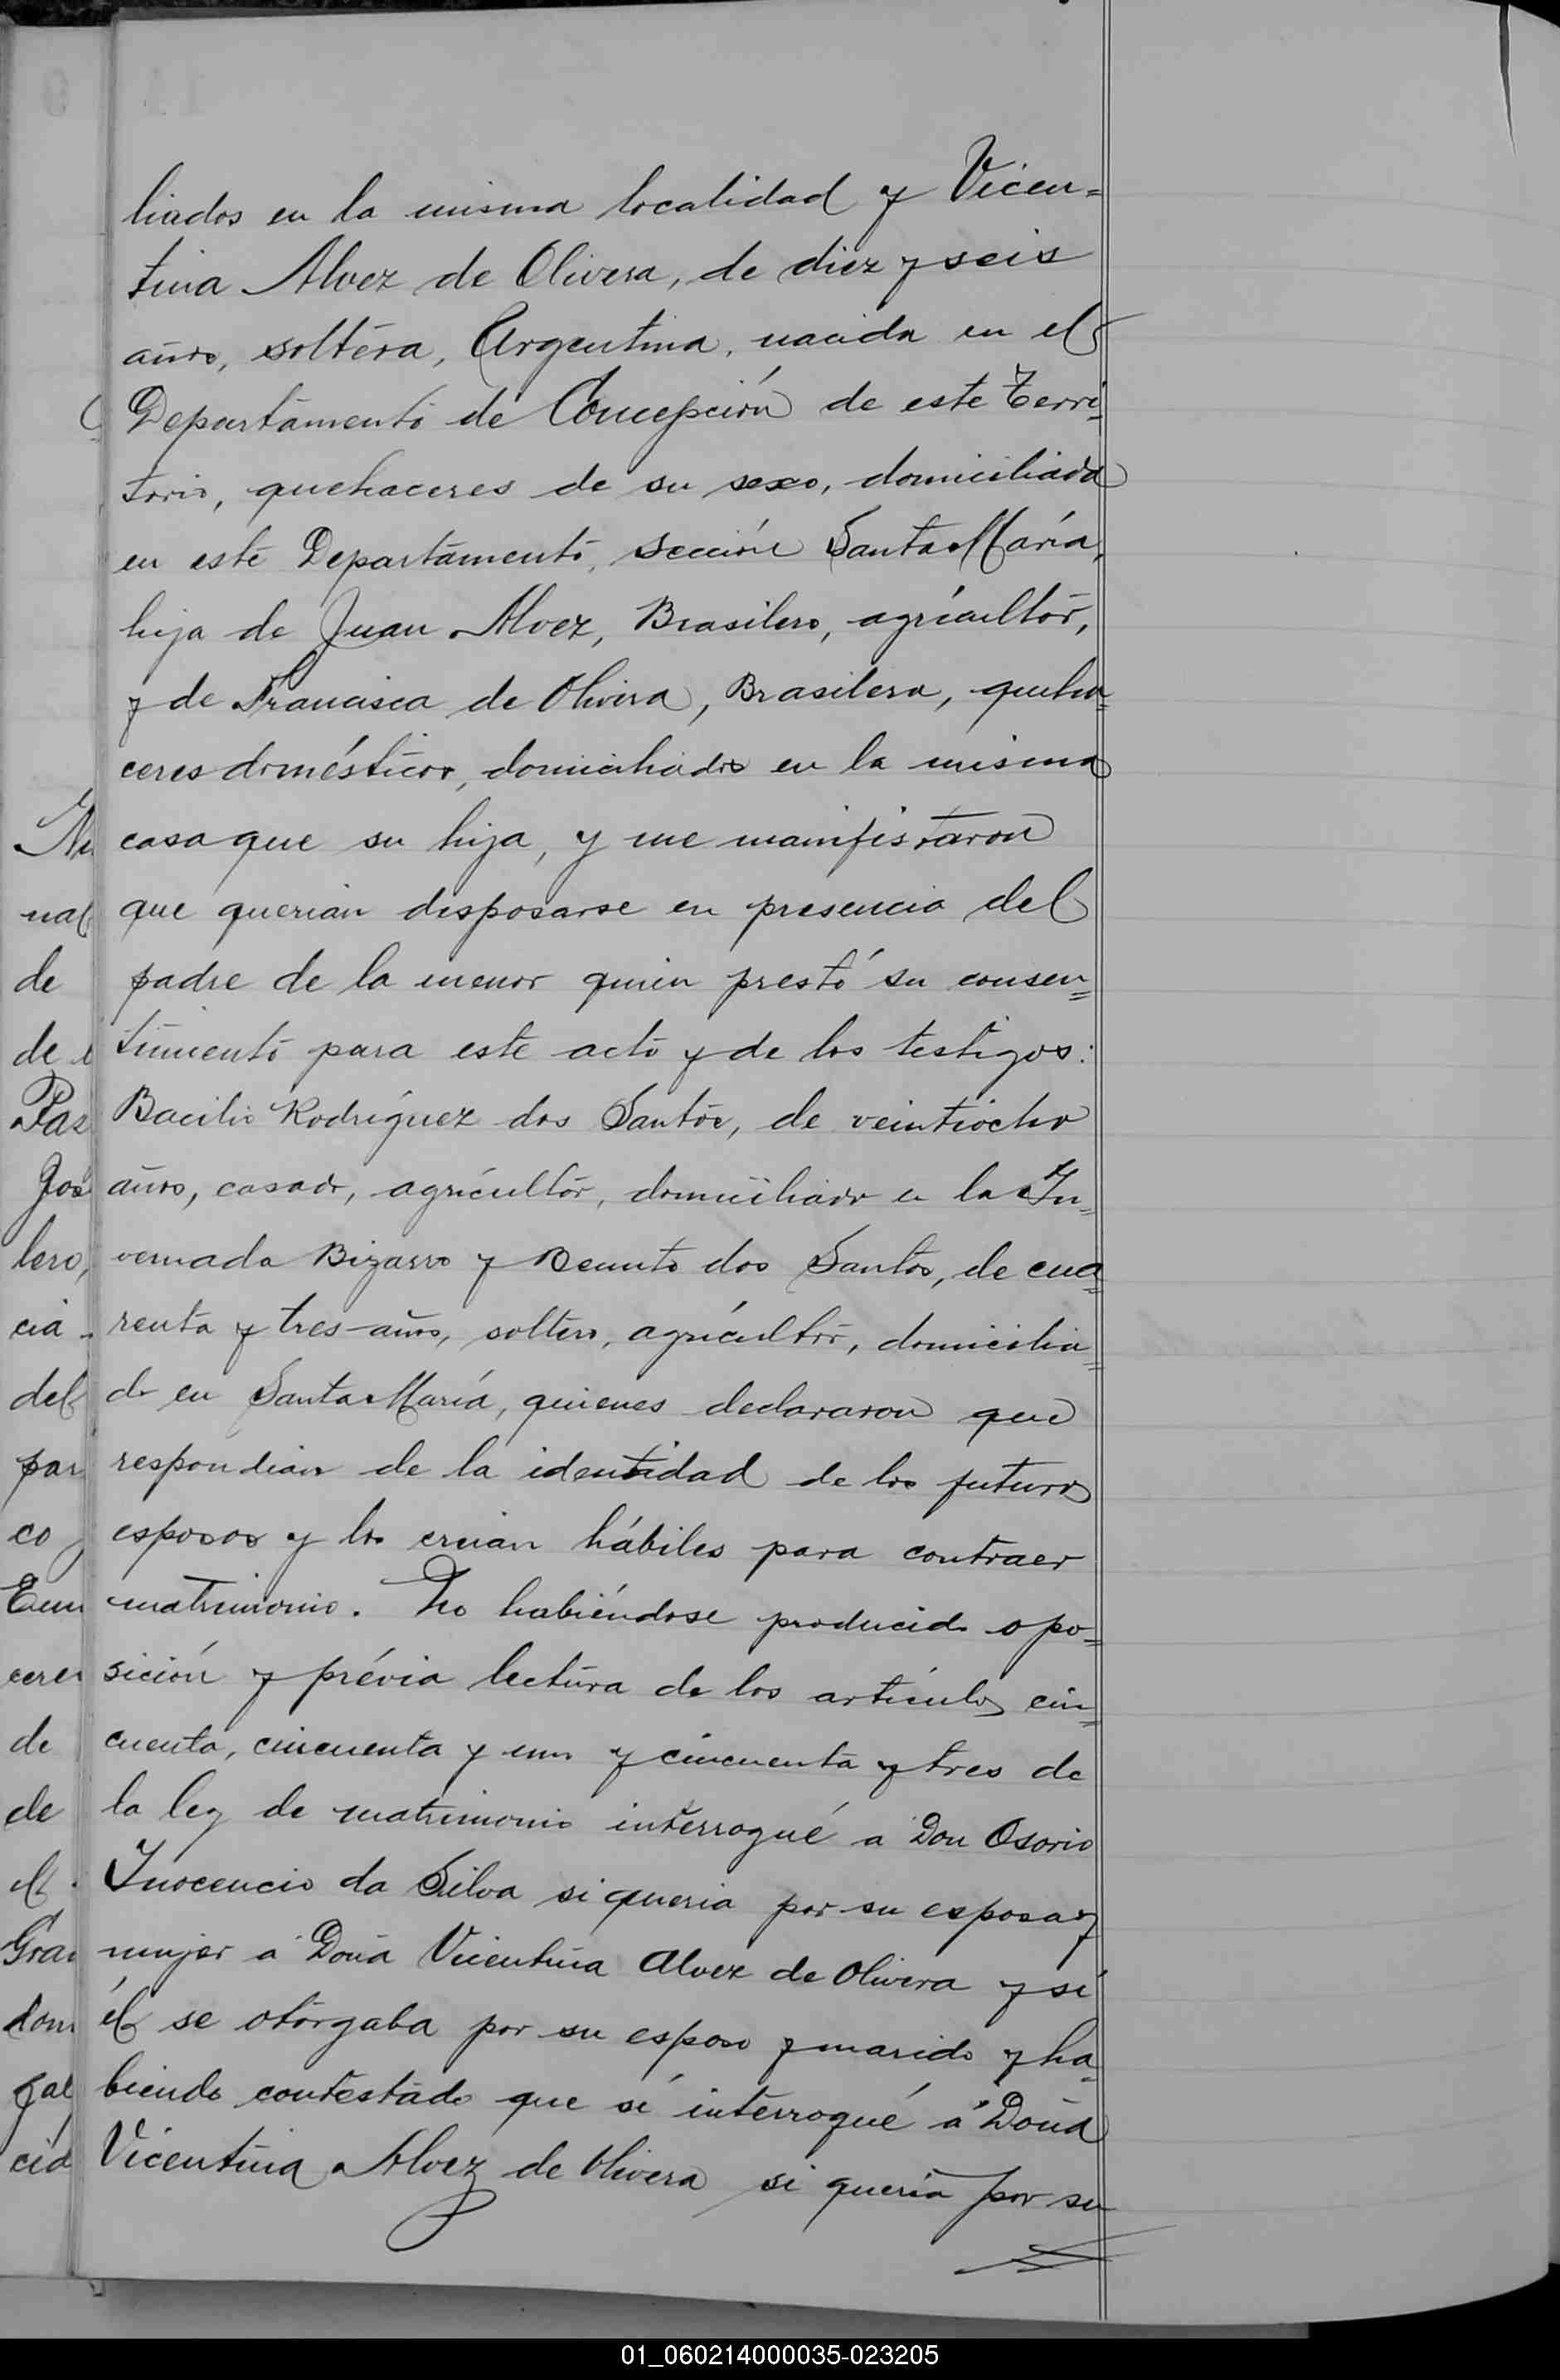 liados en la misma localidad y Vicen=
tina Alvez de Olivera, de diez y seis
años, soltera, Argentina, nacida en el
Departamento de Concepción de este Terri=
torio, quehaceres de su sexo, domiciliada
en este Departamento, sección Santa María,
hija de Juan Alvez, Brasilero, agricultor,
y de Francisca de Olivera, Brasilera, queha=
ceres domésticos, domiciliados en la misma
casa que su hija, y me manifestaron
que querian desposarse en presencia del
padre de la menor quien prestó su consen=
timiento para este acto y de los testigos:
Bacilio Rodríguez dos Santos, de veintiocho
años, casado, agricultor, domiciliado en la In=
vernada Bizarro y Benito dos Santos, de cua=
renta y tres años, soltero, agricultor, domicilia=
do en Santa María, quienes declararon que
respondian de la identidad de los futuros
esposos y los creian hábiles para contraer
matrimonio. No habiéndose producido opo=
sición y prévia lectura de los artículos cin=
cuenta, cincuenta y uno y cincuenta y tres de
la ley de matrimonio interrogué a Don Osorio
Inocencio da Silva si queria por su esposa y
mujer a Doña Vicentina Alvez de Olivera y si
él se otorgaba por su esposo y marido y ha=
biendo contestado que sí interrogué á Doña
Vicentina Alvez de Olivera si quería por su
01_060214000035-023205